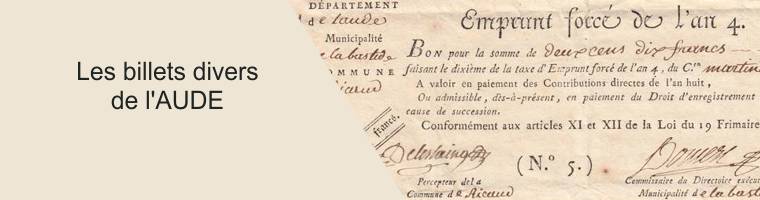 Les billets divers
de l'AUDE
DÉPARTEMENT
de laude
Municipalité
de la bastide
COMMUNE
Ricaud
francs.
Emprunt forcé de l'an 4.
BON pour la somme de deux cens dix francs
faisant le dixième de la taxe d'Emprunt forcé de l'an 4, du C.en martin
A valoir en paiement des Contributions directes de l'an huit,
Ou admissible, dès-à-présent, en paiement du Droit d'enregistrement
cause de succession.
Conformément aux articles XI et XII de la Loi du 19 Frimaire
(N.o 5.)
Percepteur de la
Commune de Ricaud
Commissaire du Directoire exécu
Municipalité de la bast